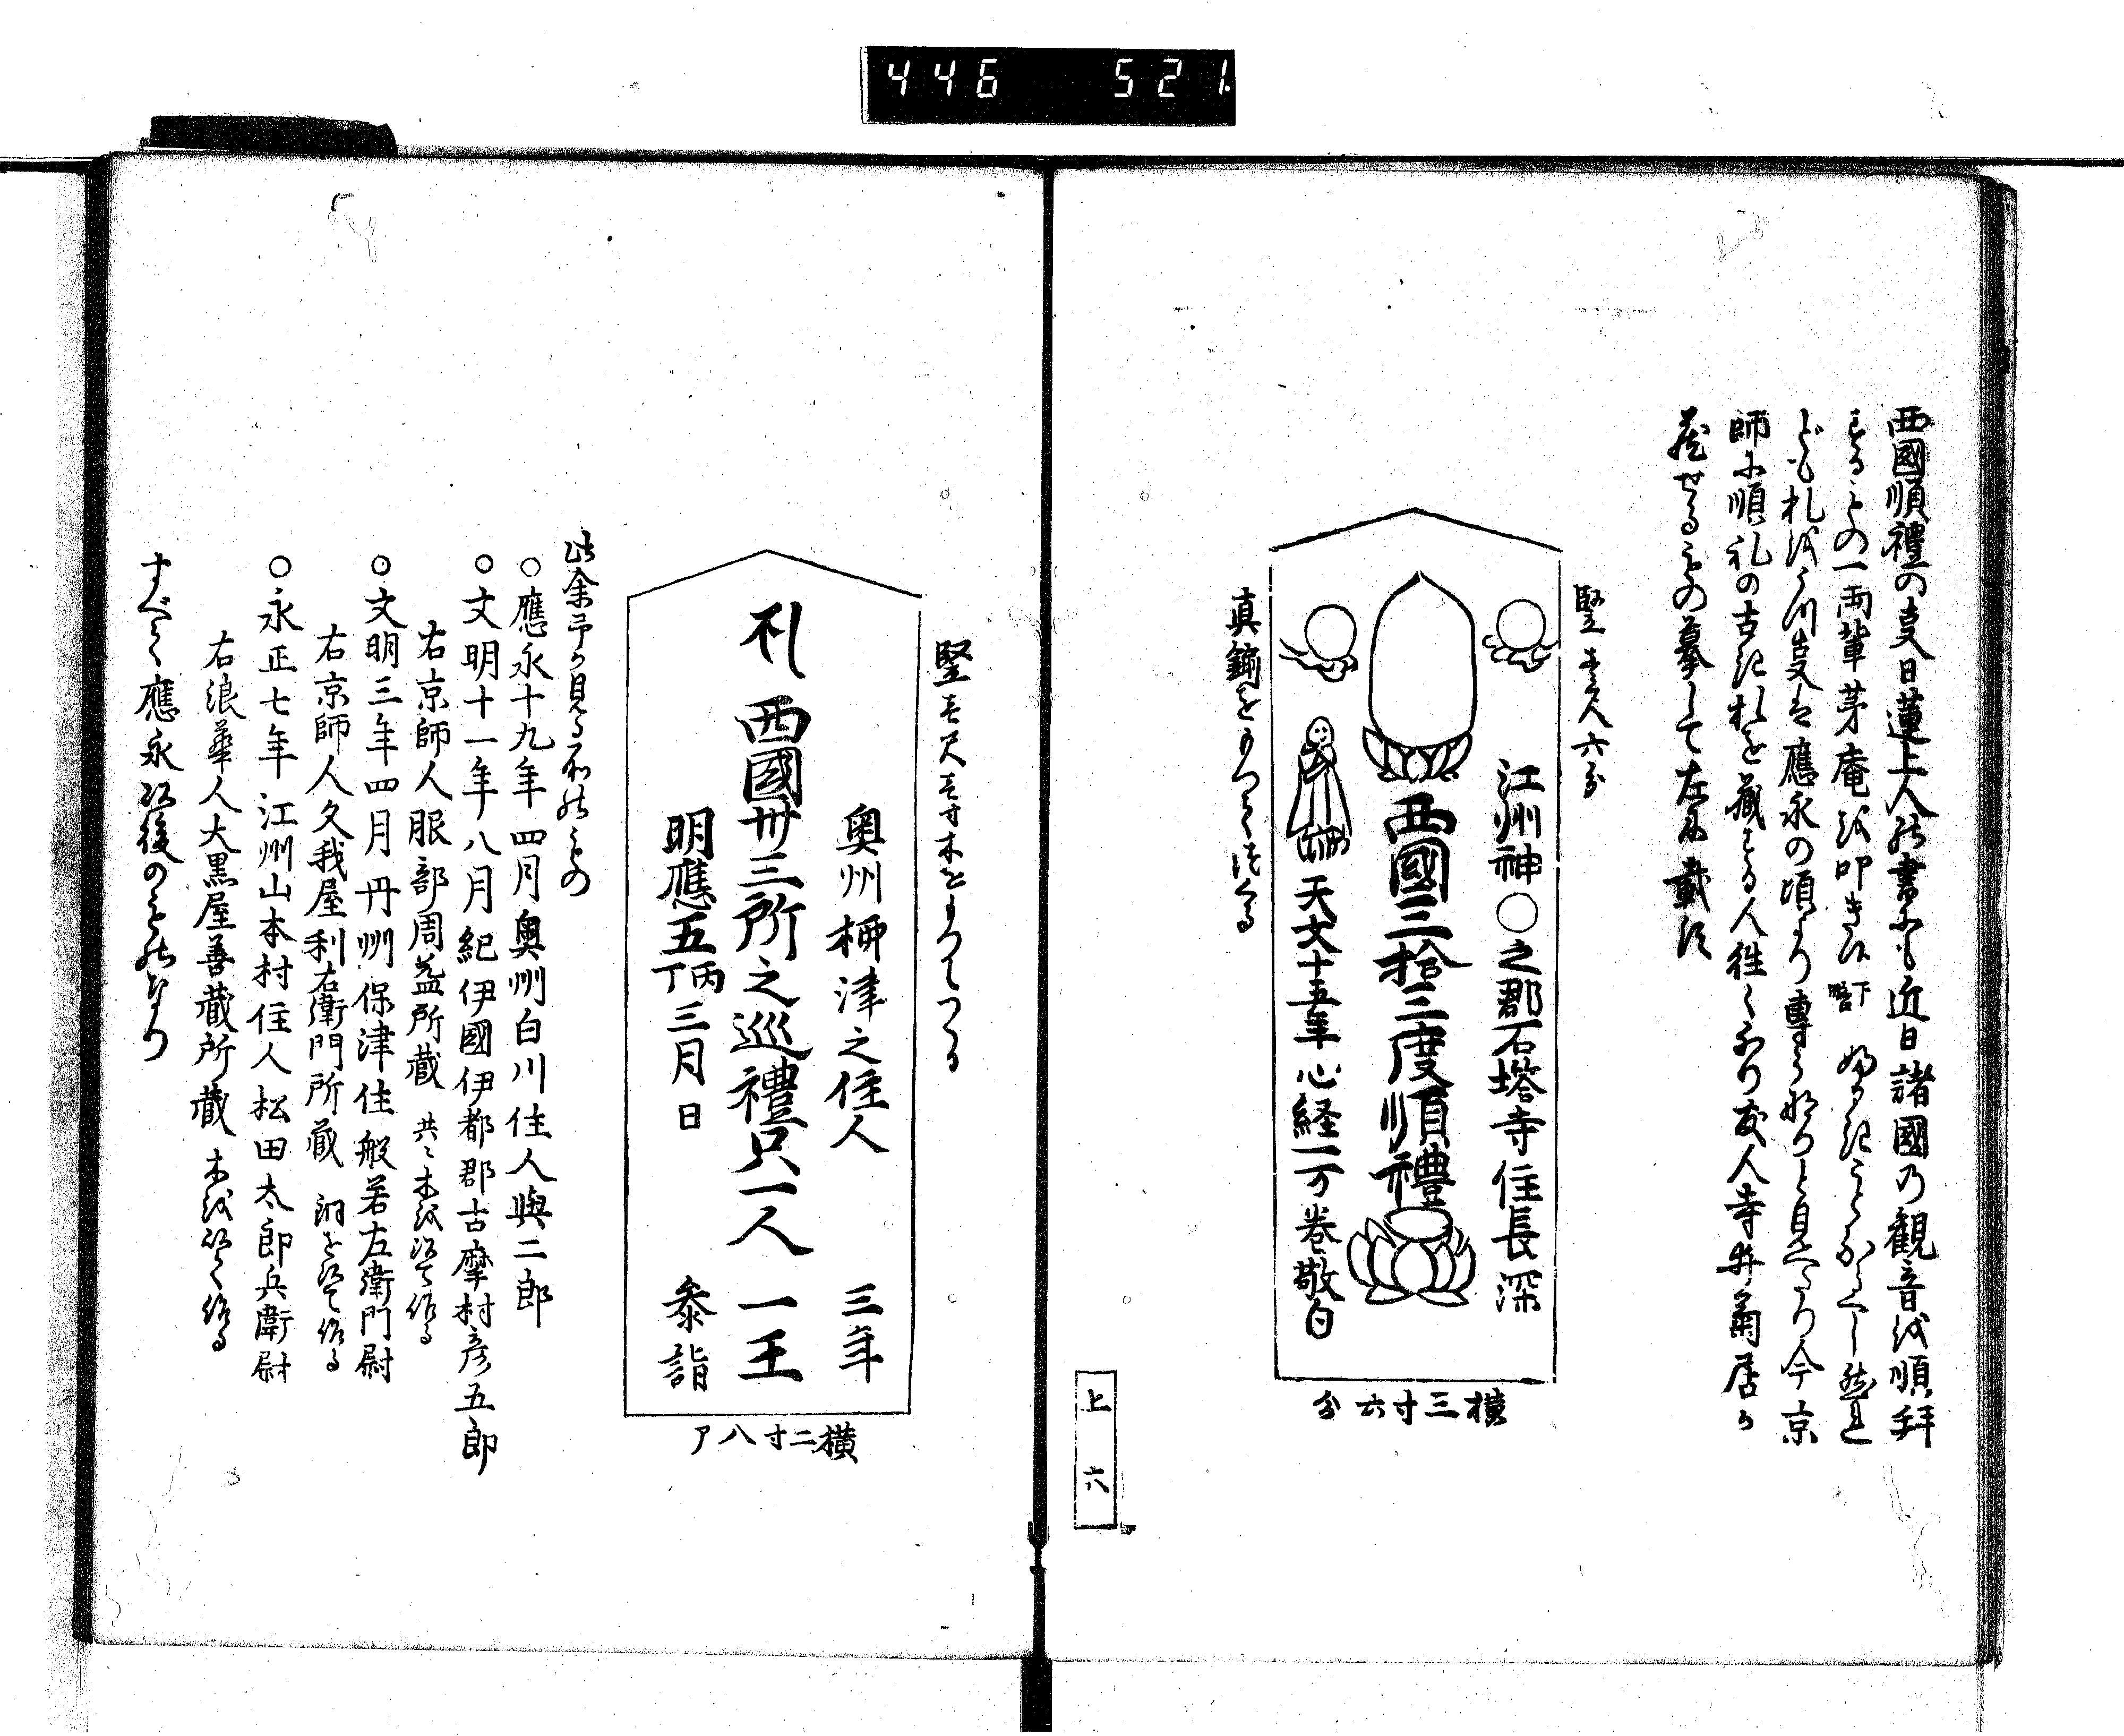 446 521
西國順禮の叓日蓮上人の書にも近日諸國乃觀音を順拜
するもの一両輩茅庵を叩き候 下略
ども札をうつ叓は應永の頃より專らなりと見へたり今京
師に順礼の古き札を藏する人往々あり友人寺井菊居が
藏せるもの摹して左に載す
竪壹尺六分
江州神〇之郡石塔寺住長深
西國三拾三度順禮
天文十五年心経一万巻敬白
横三寸六分
真鍮をもつて造くる
上 六
竪壱尺壱寸木をもつてつくる
奥州栁津之住人 三年
札 西國卅三所之巡禮只一人 一王
明應五丙丁三月日 叅詣
横二寸八
此余予が見る所のもの
〇應永十九年四月奥州白川住人與二郎
〇文明十一年八月紀伊國伊都郡古摩村彦五郎
右京師人服部周益所蔵 共ニ木を以て作る
〇文明三年四月丹州保津住般若左衛門尉
右京師人久我屋利右衛門所蔵 銅を以て作る
〇永正七年江州山本村住人松田太郎兵衛尉
右浪華人大黒屋善蔵所蔵 木を以て作る
すべて應永以後のものなり